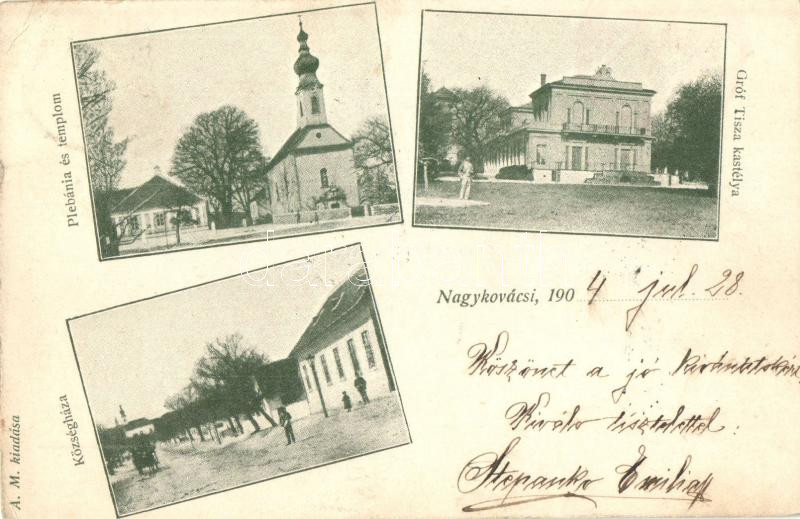 Plebánia és templom
Gróf Tisza kastélya
Községháza
A. M. kiadása
Nagykovácsi, 1904 jul. 28.
Köszönet a jó kivánatokért
Kiváló tisztelettel:
Stepanko Emilia